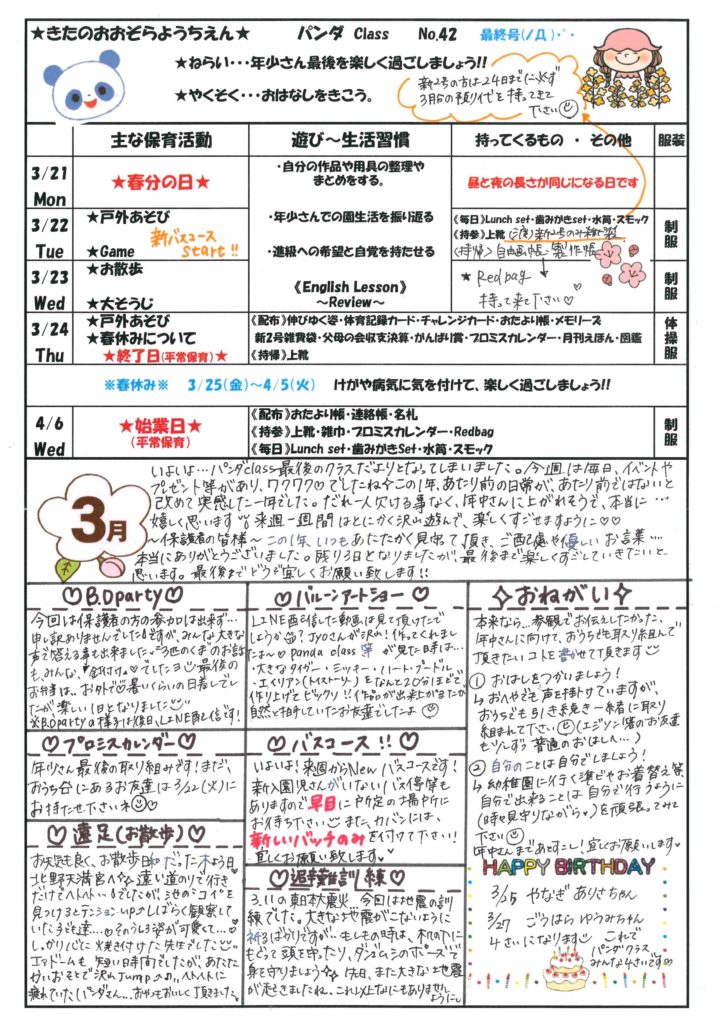 ★きたのおおぞらようちえん★ パンダ Class No.42 最終号(ノД)・゜・
★ねらい・・・年少さん最後を楽しく過ごしましょう!!
★やくそく・・・おはなしをきこう。
新2号の方は24日までに必ず
3月分の預り代を持ってきて
下さい
主な保育活動 遊び～生活習慣 持ってくるもの ・ その他 服装
3/21
Mon
★春分の日★
・自分の作品や用具の整理や
まとめをする。
昼と夜の長さが同じになる日です
3/22
Tue
★戸外あそび
★Game
新バスコース
Start!!
・年少さんでの園生活を振り返る
・進級への希望と自覚を持たせる
《毎日》Lunch set・歯みがきset・水筒・スモック
《持参》上靴
《持帰》自由画帳・製作帳
制服
3/23
Wed
★お散歩
★大そうじ
《English Lesson》
～Review～
★Redbag
持って来て下さい♡
制服
3/24
Thu
★戸外あそび
★春休みについて
★終了日(平常保育)★
《配布》伸びゆく姿・体育記録カード・チャレンジカード・おたより帳・メモリーズ
新2号雑費袋・父母の会収支決算・がんばり賞・プロミスカレンダー・月刊えほん・図鑑
《持帰》上靴
体操服
※春休み※ 3/25(金)～4/5(火) けがや病気に気を付けて、楽しく過ごしましょう!!
4/6
Wed
★始業日★
(平常保育)
《配布》おたより帳・連絡帳・名札
《持参》上靴・雑巾・プロミスカレンダー・Redbag
《毎日》Lunch set・歯みがきSet・水筒・スモック
制服
3月
いよいよ…パンダclass最後のクラスだよりとなってしまいました。今週は毎日、イベントや
プレゼント等があり、ワクワク♡でしたね✧この1年、あたり前の日常が、あたり前ではないと
改めて実感した一年でした。だれ一人欠ける事なく、年中さんに上がれそうで、本当に…
嬉しく思います 来週一週間はとにかく沢山遊んで、楽しくすごせますように♡♡
～保護者の皆様～ この1年、いつもあたたかく見守って頂き、ご配慮や優しいお言葉…
本当にありがとうございました。残り3日となりましたが、最後まで楽しくすごしていきたいと
思います。最後までどうぞ宜しくお願い致します!!
♡B.Dparty♡
今回は保護者の方の参加は出来ず…
申し訳ありませんでしたが、みんな大きな
声で答える事も出来ました。"3匹のくま"のお話
も、みんな、"釘付け。"でしたヨ 最後の
お弁当は、お外で♡暑いくらいの日差しでし
たが楽しい1日となりました
※B.Dpartyの様子は後日、LINE配信です!
♡バルーンアートショー♡
LINE配信した動画は見て頂けたで
しょうか JYOさんが沢山!作ってくれまし
たよ～♡ panda class 等が見た時は…
・大きなタイガー・ミッキー・ハート・プードル
・エイリアン(トイストーリー)をなんと20分ほどで
作り上げてビックリ!!作品が出来上がるたび
自然と拍手していたお友達でしたよ
✧おねがい✧
本来なら…参観でお伝えしたかった、
年中さんに向けて、おうちでも取り組んで
頂きたいコトを書かせて頂きます
① おはしをつかいましょう!
↳おへやでも声を掛けていますが、
おうちでも引き続き一緒に取り
組まれて下さい(エジソン等のお友達
も少しずつ普通のおはしへ…)
② 自分のことは自分でしましょう!
↳幼稚園に行く準備やお着替え等
自分で出来ることは自分で行うように
(時々見守りながら♡)を頑張ってみて
下さい
年中さんまであと少し!宜しくお願いします。
♡プロミスカレンダー♡
年少さん最後の取り組みです!まだ、
おうちにあるお友達は3/22(火)に
お持たせ下さいネ♡
♡バスコース!!♡
いよいよ!来週からNewバスコースです!
新入園児さんがいないバス停等も
ありますので早目に所定の場所に
お待ち下さい また、カバンには、
新しいバッチのみを付けて下さい!
宜しくお願い致します♡
♡遠足(お散歩)♡
お天気も良く、お散歩日和だった木よう日。
北野天満宮へ✧遠い道のりで行き
だけでヘトヘト…でしたが、池の"コイ"を
見つけるとテンションupでしばらく観察して
いた子ども達…♡そのうしろ姿が可愛くて…♡
しっかり心に焼き付けた先生でした
エッドームも、短い時間でしたが、あたた
かいおそとで沢山Jump♪♪ヘトヘトに
疲れていたパンダさん…おやつもおいしく頂きました。
♡避難訓練♡
3.11の東日本大震災…今回は地震の訓
練でした。大きな地震がこないように
祈るばかりですが…もしもの時は、机の下に
もぐって頭を守ったり、ダンゴムシのポーズで
身を守りましょう 先日、また大きな地震
が起きましたね、これ以上なにもありません
ように…
HAPPY BIRTHDAY
3/25 やなぎ ありさちゃん
3/27 ごうはら ゆうみちゃん
4さいになります これで
パンダクラス
みんな4さいです♡